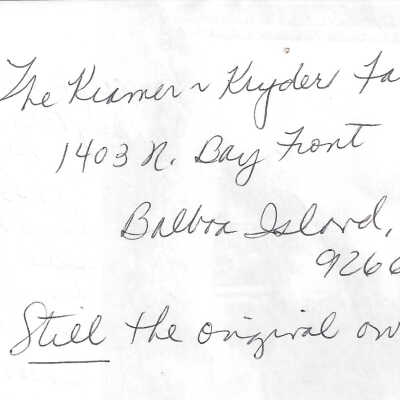 The Kramer ~ Kryder Fa
1403 N. Bay Front
Balboa Island,
9266
Still the original ow